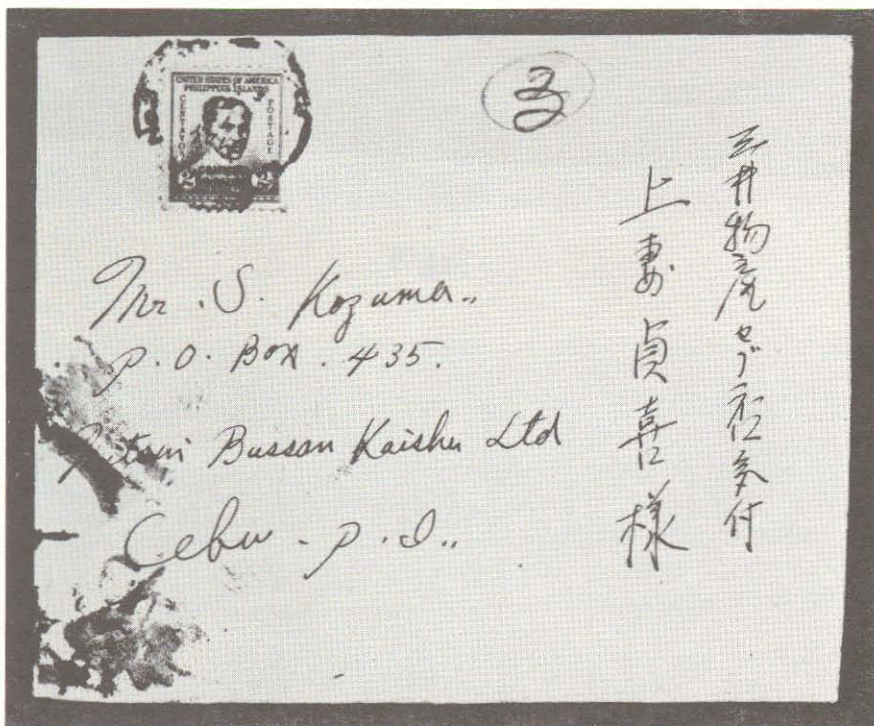 UNITED STATES OF AMERICA
PHILIPPINE ISLANDS
CENTAVOS
POSTAGE
2 2
Mr. S. Kozuma..
P.O. Box. 435.
Bussan Kaisha Ltd
Cebu. P.I..
三井物産セブ 気付
上妻貞喜様